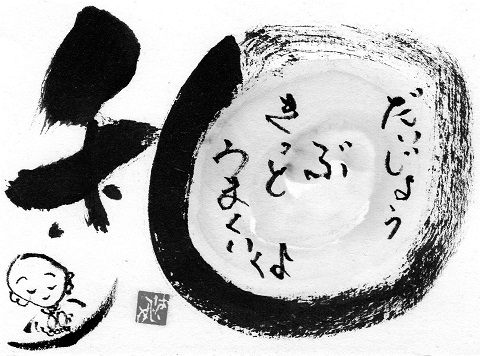 だいじょう
ぶ
きっと
うまくいくよ